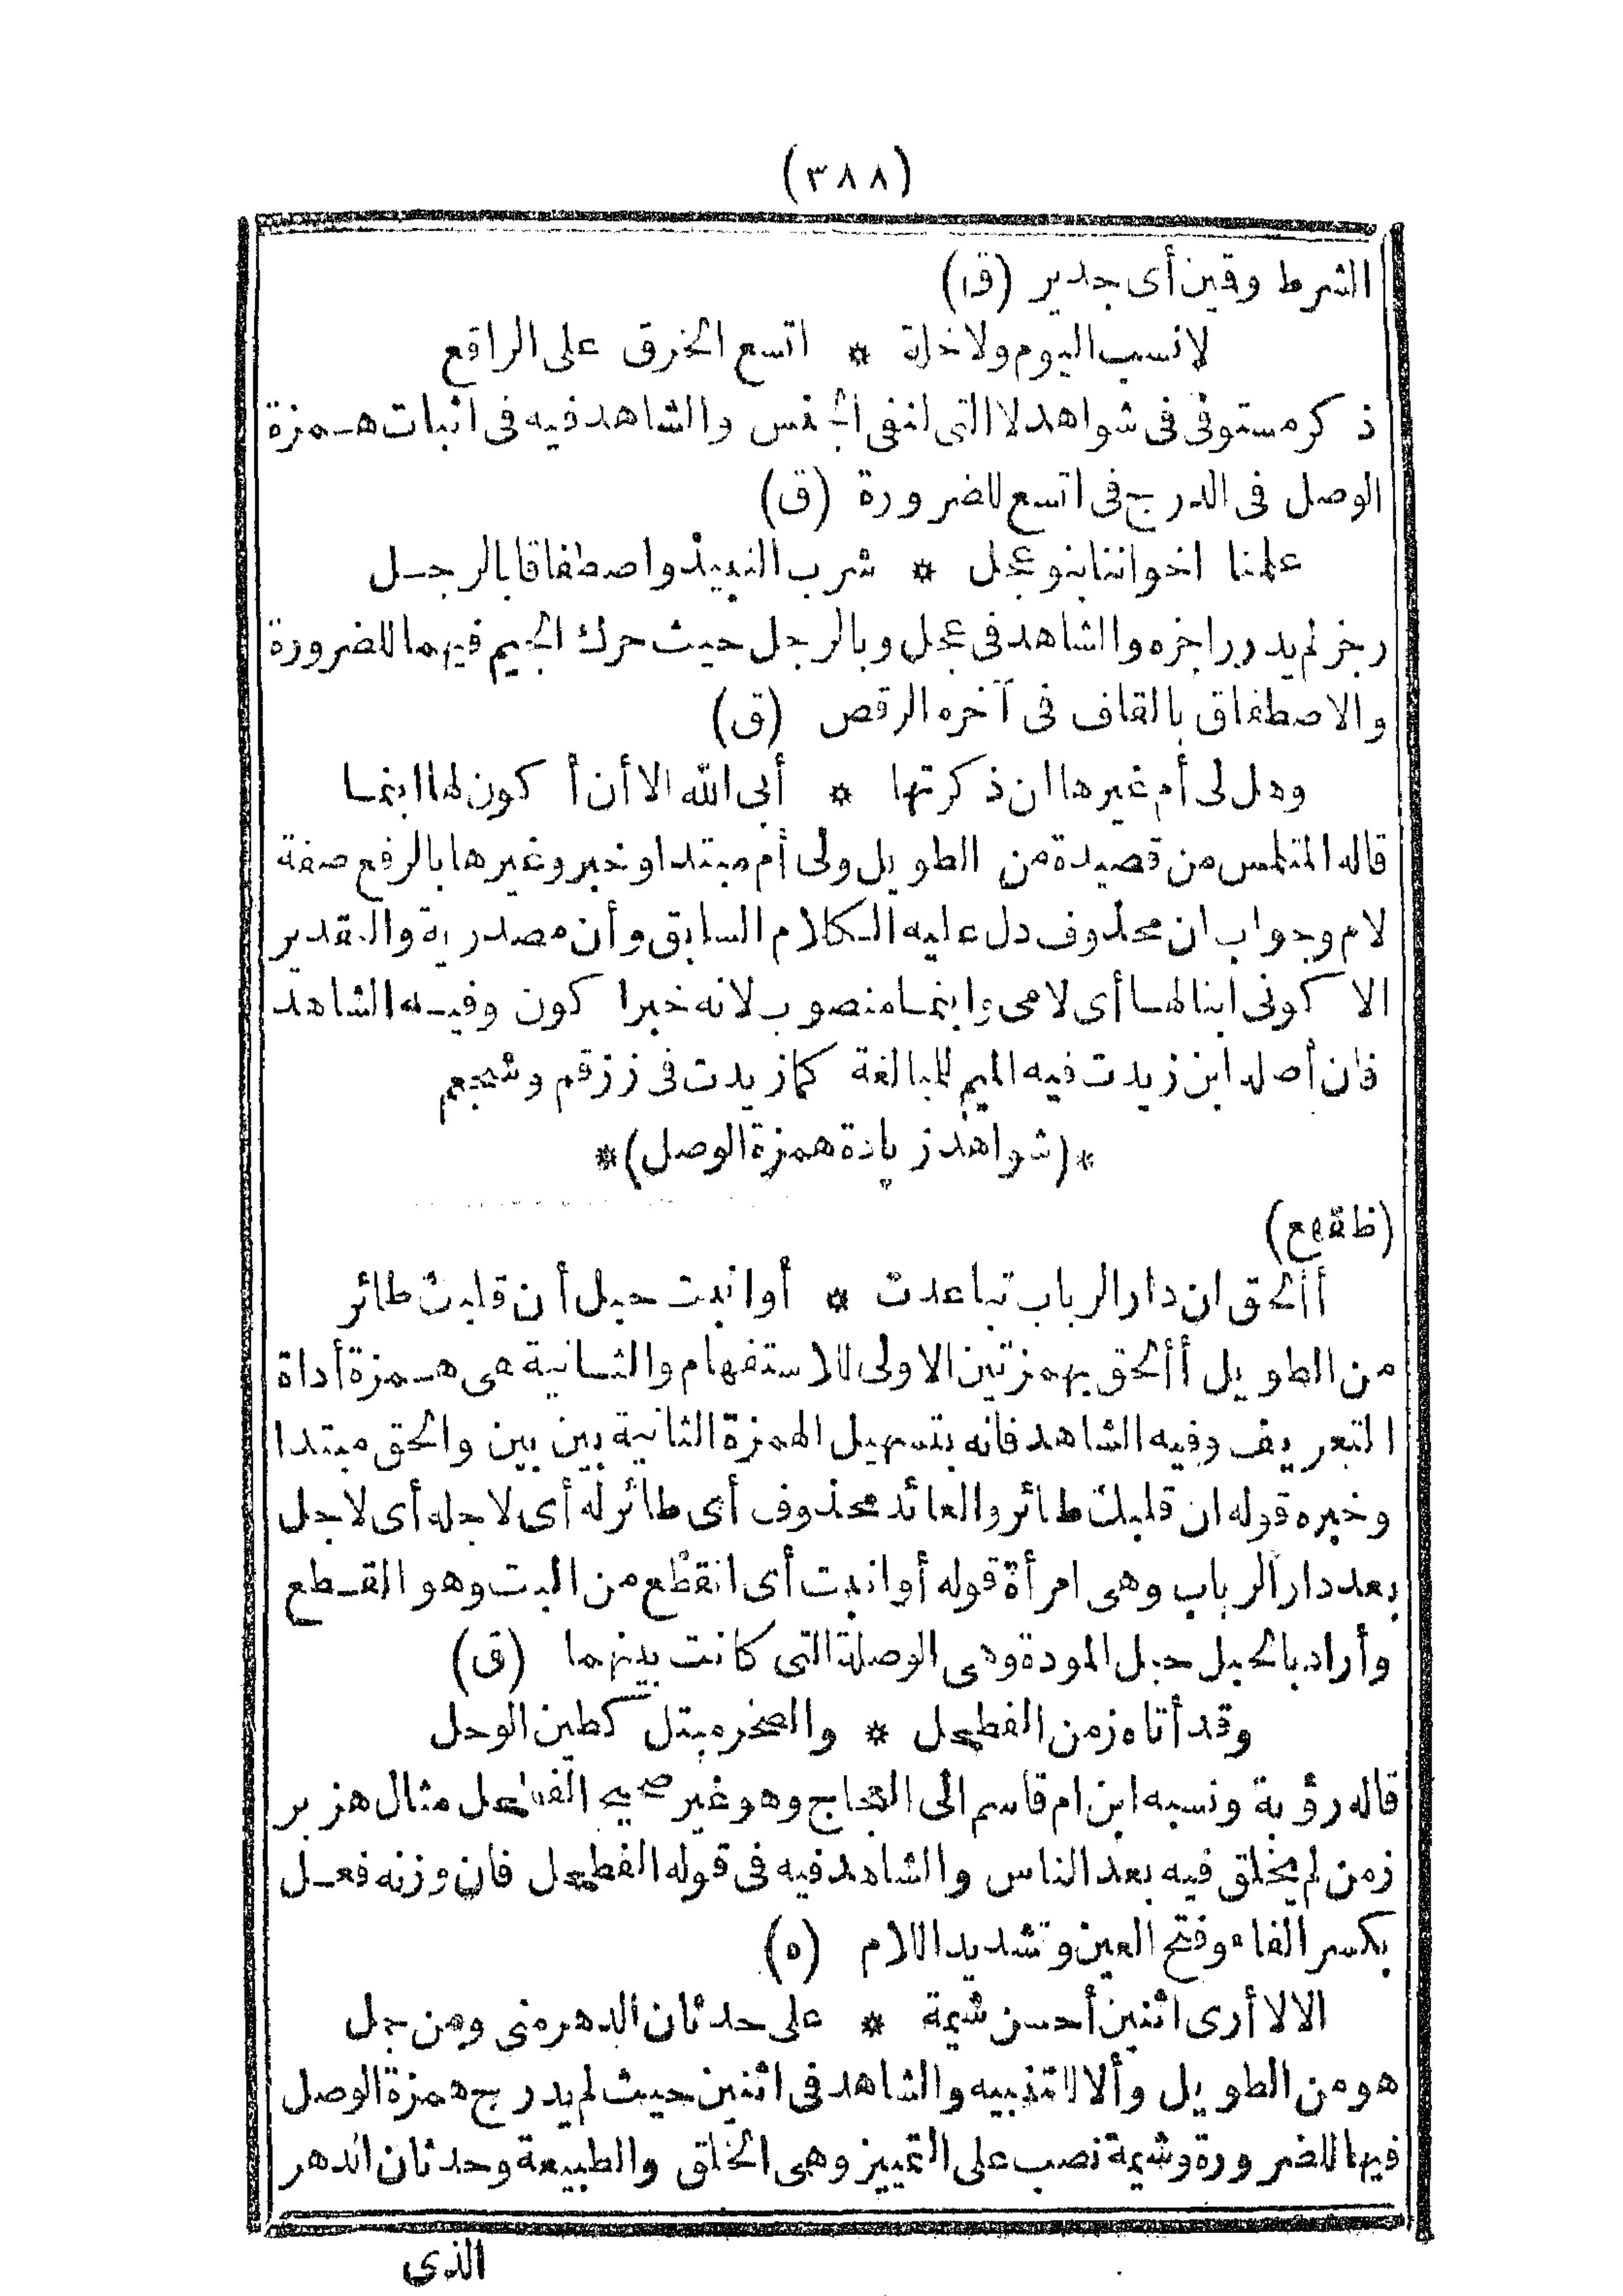 (٣٨٨)
الشرط وقين أى جدير (ق)
لا نسب اليوم ولا خلة * اتسع الخرق على الراقع
ذكر مستوفى فى شواهد لا التى لنفى الجنس والشاهد فيه فى اثبات همزة
الوصل فى الدرج فى اتسع للضرورة (ق)
علمنا اخواننا بنو عجل * شرب النبيذ واصطفاقا بالرجل
رجز لم يدر راجزه والشاهد فى عجل وبالرجل حيث حرك الجيم فيهما للضرورة
والاصطفاق بالقاف فى آخره الرقص (ق)
وهل لى أم غيرها ان ذكرتها * أبى الله الا أن أكون لها ابنما
قاله المتلمس من قصيدة من الطويل ولى أم مبتدا وخبر وغيرها بالرفع صفة
لام وجواب ان محذوف دل عليه الكلام السابق وأن مصدرية والتقدير
الا كونى ابنا لها أى لامى وابنما منصوب لانه خبر اكون وفيه الشاهد
فان أصله ابن زيدت فيه الميم للمبالغة كما زيدت فى زرقم وشجعم
*(شواهد زيادة همزة الوصل)*
(ظقهع)
أألحق ان دار الرباب تباعدت * أو انبت حبل أن قلبك طائر
من الطويل أألحق بهمزتين الاولى للاستفهام والثانية هى همزة أداة
التعريف وفيه الشاهد فانه بتسهيل الهمزة الثانية بين بين والحق مبتدا
وخبره قوله ان قلبك طائر والعائد محذوف أى طائر له أى لاجله أى لاجل
بعد دار الرباب وهى امرأة قوله أو انبت أى انقطع من البت وهو القطع
وأراد بالحبل حبل المودة وهى الوصلة التى كانت بينهما (ق)
وقد أتاه زمن الفطحل * والصخر مبتل كطين الوحل
قاله رؤبة ونسبه ابن ام قاسم الى العجاج وهو غير صحيح الفطحل مثال هزبر
زمن لم يخلق فيه بعد الناس والشاهد فيه فى قوله الفطحل فان وزنه فعل
بكسر الفاء وفتح العين وتشديد اللام (ه)
الا لا أرى اثنين أحسن شيمة * على حدثان الدهر منى ومن جمل
هو من الطويل وألا للتنبيه والشاهد فى اثنين حيث لم يدرج همزة الوصل
فيها للضرورة وشيمة نصب على التمييز وهى الخلق والطبيعة وحدثان الدهر
الذى